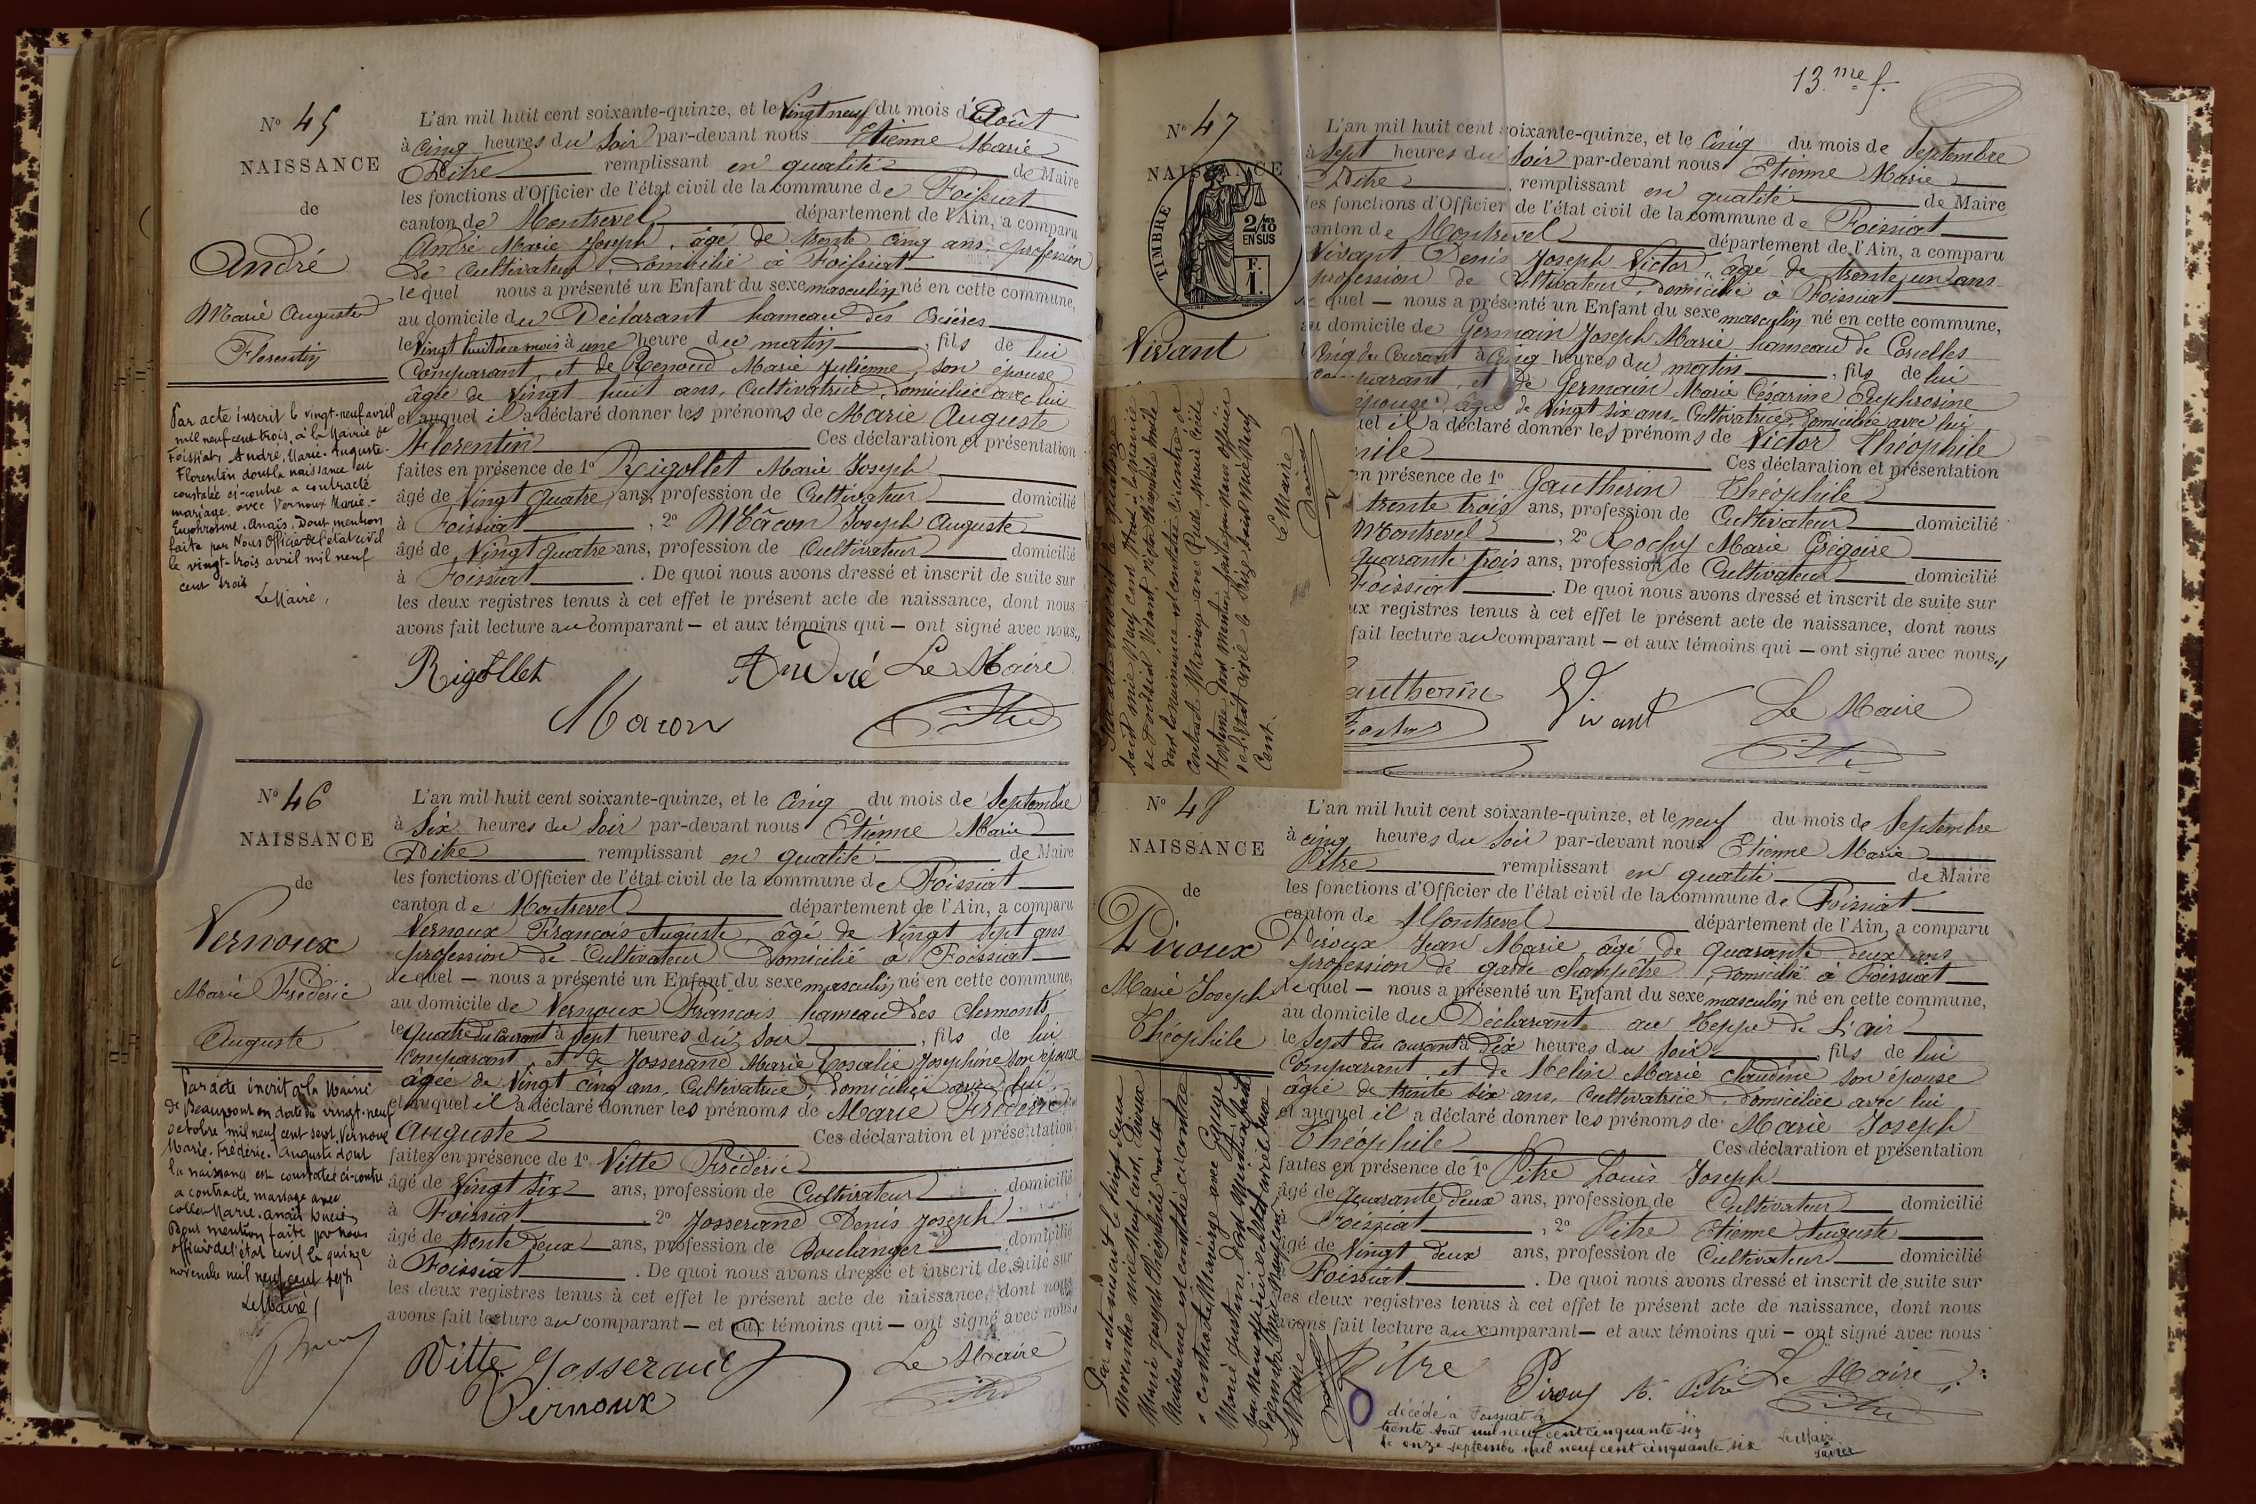 N° 45
NAISSANCE
de
André
Marie Auguste
Florentin
Par acte inscrit le vingt-neuf avril
mil neuf cent trois, à la Mairie de
Foissiat, André, Marie-Auguste-
Florentin dont la naissance est
constatée ci-contre a contracté
mariage avec Vernoux Marie-
Euphrosine-Anaïs. Dont mention
faite par Nous Officier de l'état civil
le vingt-trois avril mil neuf
cent trois
Le Maire,
L'an mil huit cent soixante-quinze, et le Vingt neuf du mois d'Août
à cinq heures du Soir par-devant nous Etienne Marie
Pitre remplissant en qualité de Maire
les fonctions d'Officier de l'état civil de la commune de Foissiat
canton de Montrevel département de l'Ain, a comparu
André Marie Joseph, âgé de trente cinq ans profession
de Cultivateur, domicilié à Foissiat
lequel nous a présenté un Enfant du sexe masculin né en cette commune,
au domicile du Déclarant hameau des
le Vingt huit du mois à une heure du matin, fils de lui
Comparant, et de Renoud Marie Julienne, son épouse
âgée de Vingt huit ans, Cultivatrice, domiciliée avec lui
et auquel il a déclaré donner les prénoms de Marie Auguste
Florentin Ces déclaration et présentation
faites en présence de 1° Rigollet Marie Joseph
âgé de Vingt quatre ans, profession de Cultivateur domicilié
à Foissiat, 2° Mâcon Joseph Auguste
âgé de Vingt quatre ans, profession de Cultivateur domicilié
à Foissiat. De quoi nous avons dressé et inscrit de suite sur
les deux registres tenus à cet effet le présent acte de naissance, dont nous
avons fait lecture au comparant — et aux témoins qui — ont signé avec nous,,
Rigollet André Le Maire
Macon Pitre
N° 46
NAISSANCE
de
Vernoux
Marie Frédéric
Auguste
Par acte incrit à la Mairie
de Beaupont en date du vingt-neuf
octobre mil neuf cent sept, Vernoux
Marie-Frédéric-Auguste dont
la naissance est constatée ci-contre
a contracté mariage avec
Collet Marie-Anaïs
Dont mention faite par nous
officier de l'état civil le quinze
novembre mil neuf cent sept
Le Maire
L'an mil huit cent soixante-quinze, et le Cinq du mois de Septembre
à Six heures du Soir par-devant nous Etienne Marie
Pitre remplissant en qualité de Maire
les fonctions d'Officier de l'état civil de la commune de Foissiat
canton de Montrevel département de l'Ain, a comparu
Vernoux François Auguste, âgé de Vingt Sept ans
profession de Cultivateur domicilié à Foissiat
lequel — nous a présenté un Enfant du sexe masculin né en cette commune,
au domicile de Vernoux François hameau des Clermonts
le quatre du courant à Sept heures du Soir, fils de lui
Comparant, et de Josserand Marie Rosalie Josephine son épouse
âgée de Vingt cinq ans, Cultivatrice, domiciliée avec lui
et auquel il a déclaré donner les prénoms de Marie Frédéric
Auguste Ces déclaration et présentation
faites en présence de 1° Vitte Frédéric
âgé de Vingt six ans, profession de Cultivateur domicilié
à Foissiat 2° Josserand Denis Joseph
âgé de trente deux ans, profession de Boulanger domicilié
à Foissiat. De quoi nous avons dressé et inscrit de suite sur
les deux registres tenus à cet effet le présent acte de naissance, dont nous
avons fait lecture au comparant — et aux témoins qui — ont signé avec nous,
Vitte Josserand Le Maire
Vernoux Pitre
13.me f.
N° 47
NAISSANCE
TIMBRE
2/10
EN SUS
F.
1.
Vivant
dont la naissance est constatée ci contre a
contracté Mariage avec
Hortense Dont Mention faite par nous officier
de l'état civil le
Cent.
Le Maire
L'an mil huit cent soixante-quinze, et le Cinq du mois de Septembre
à Sept heures du Soir par-devant nous Etienne Marie
Pitre, remplissant en qualité de Maire
les fonctions d'Officier de l'état civil de la commune de Foissiat
canton de Montrevel département de l'Ain, a comparu
Vivant Denis Joseph Victor, âgé de trente un ans
profession de Cultivateur, domicilié à Foissiat
lequel — nous a présenté un Enfant du sexe masculin né en cette commune,
au domicile de Germain Joseph Marie hameau de Coruelles
Cinq du Courant à Cinq heures du matin, fils de lui
comparant, et de Germain Marie Césarine Euphrosine
épouse, âgée de Vingt six ans, Cultivatrice, domiciliée avec lui
il a déclaré donner les prénoms de Victor Théophile
Ces déclaration et présentation
en présence de 1° Gautherin Théophile
trente trois ans, profession de Cultivateur domicilié
Montrevel, 2° Rochy Marie Grégoire
quarante trois ans, profession de Cultivateur domicilié
Foissiat. De quoi nous avons dressé et inscrit de suite sur
registres tenus à cet effet le présent acte de naissance, dont nous
fait lecture au comparant — et aux témoins qui — ont signé avec nous,,
Gautherin Vivant Le Maire
N° 48
NAISSANCE
de
Piroux
Marie Joseph
Théophile
Par acte inscrit le vingt deux
Novembre mil neuf cent, Piroux
Marie Joseph Théophile dont la
Naissance est constatée ci contre
a contracté Mariage avec
Marie Dont Mention faite
par Nous officier de l'état civil le deux
Décembre mil neuf cent
Le Maire
L'an mil huit cent soixante-quinze, et le neuf du mois de Septembre
à cinq heures du Soir par-devant nous Etienne Marie
Pitre remplissant en qualité de Maire
les fonctions d'Officier de l'état civil de la commune de Foissiat
canton de Montrevel département de l'Ain, a comparu
Piroux Jean Marie âgé de quarante deux ans
profession de garde champêtre, domicilié à Foissiat
lequel — nous a présenté un Enfant du sexe masculin né en cette commune,
au domicile du Déclarant au
le Sept du courant à Dix heures du Soir, fils de lui
Comparant, et de Melin Marie Claudine son épouse
âgée de trente six ans, Cultivatrice, domiciliée avec lui
et auquel il a déclaré donner les prénoms de Marie Joseph
Théophile Ces déclaration et présentation
faites en présence de 1° Pitre Louis Joseph
âgé de quarante deux ans, profession de Cultivateur domicilié
Foissiat, 2° Pitre Etienne Auguste
âgé de Vingt deux ans, profession de Cultivateur domicilié
Foissiat. De quoi nous avons dressé et inscrit de suite sur
les deux registres tenus à cet effet le présent acte de naissance, dont nous
avons fait lecture au comparant — et aux témoins qui — ont signé avec nous
Pitre Piroux A. Pitre Le Maire
décédé à Foissiat le
trente août mil neuf cent cinquante-six
le onze septembre mil neuf cent cinquante six Le Maire